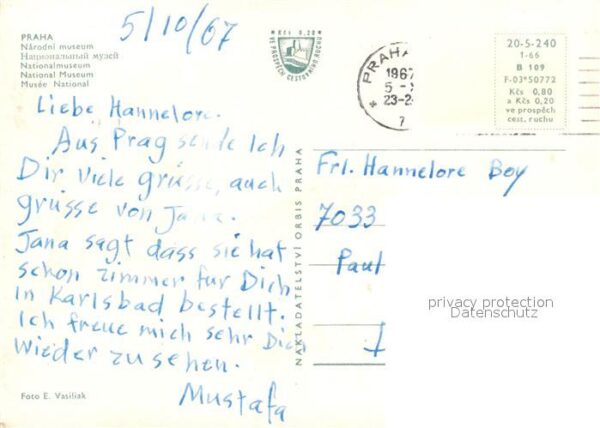 PRAHA
Národní museum
Национальный музей
Nationalmuseum
National Museum
Musée National
5/10/67
Kčs 0,20
VE PROSPĚCH CESTOVNÍHO RUCHU
PRAHA
1967
23-2
*
7
20-5-240
1-66
B 109
F-03*50772
Kčs 0,80
a Kčs 0,20
ve prospěch
cest. ruchu
Liebe Hannelore.
Aus Prag sende Ich
Dir viele grüsse, auch
grüsse von Jana.
Jana sagt dass sie hat
schon zimmer für Dich
in Karlsbad bestellt.
Ich freue mich sehr Dich
wieder zu sehen.
Mustafa
Foto E. Vasiliak
NAKLADATELSTVÍ ORBIS PRAHA
Frl. Hannelore Boy
7033
Paul
privacy protection
Datenschutz